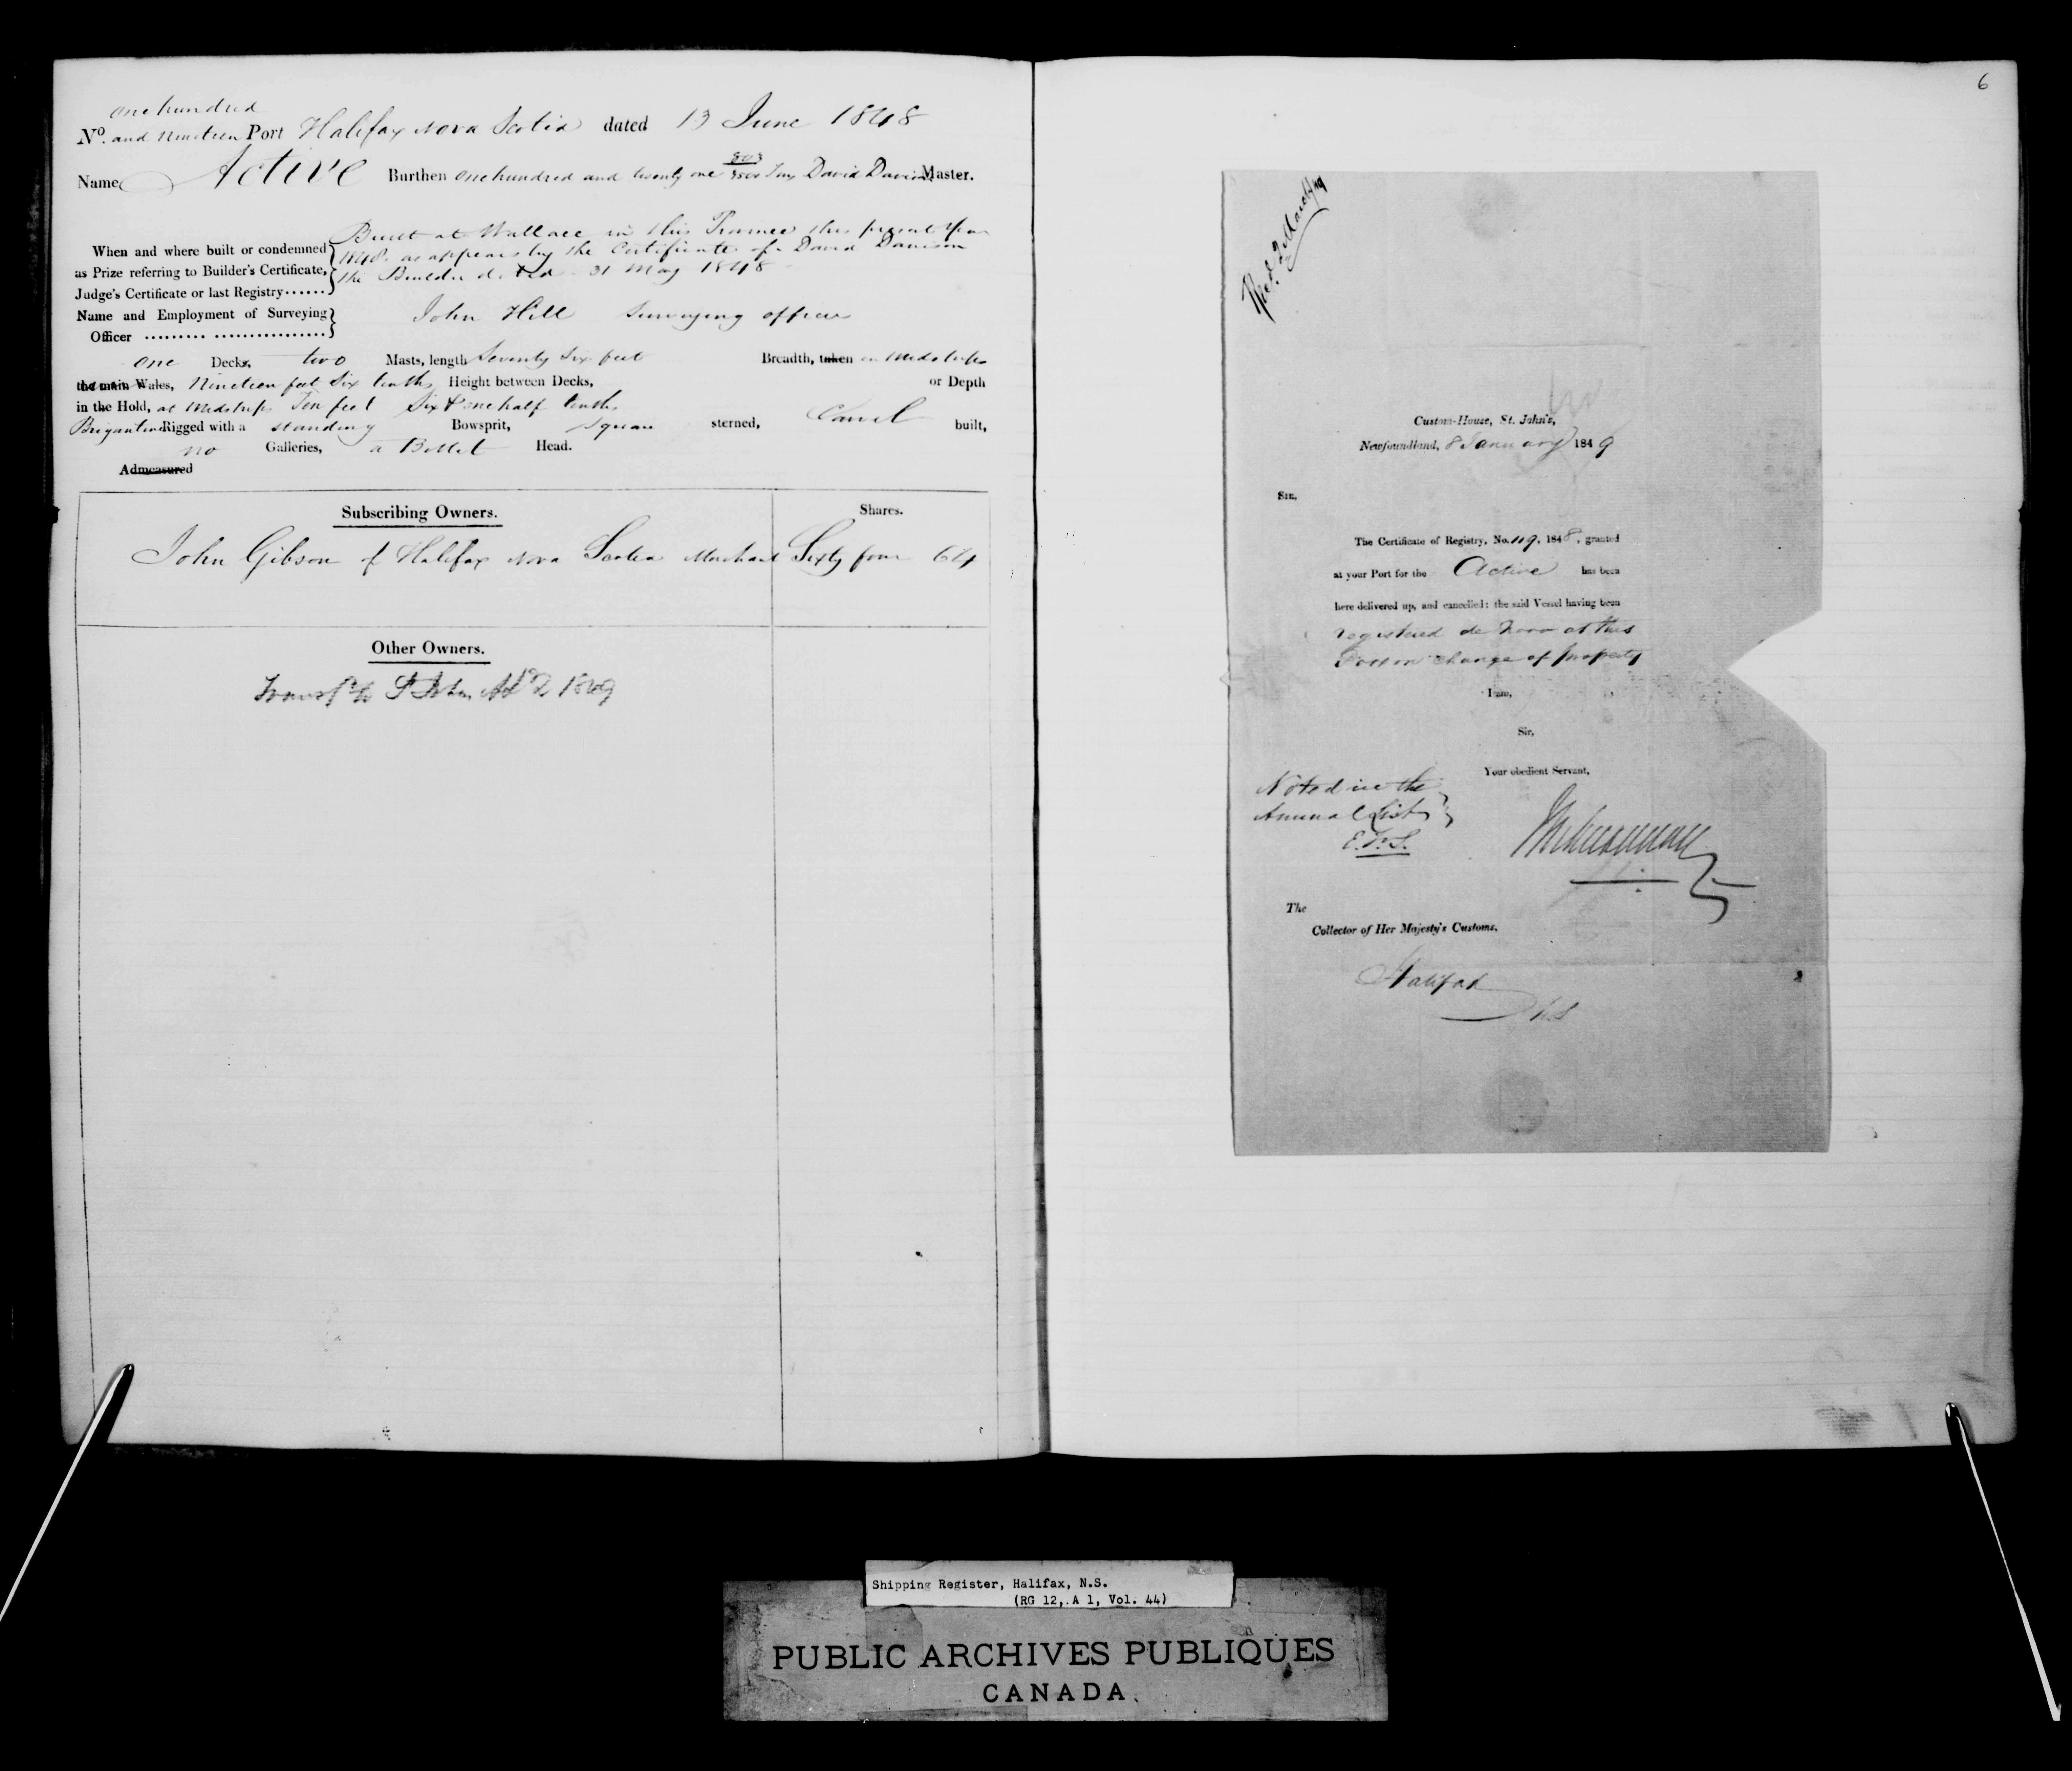 one hundred
No. and Nineteen Port Halifax Nova Scotia dated 13 June 1848
Name Active Burthen one hundred and twenty one 803/3500 Tons David Davison Master.
Built at Wallace in this Province this present Year
When and where built or condemned 1848. as appears by the Certificate of David Davison
as Prize referring to Builder's Certificate, the Builder dated 31 May 1848
Judge's Certificate or last Registry......
Name and Employment of Surveying John Hill Surveying officer
Officer ......... ................
one Decks, two Masts, length Seventy Six feet Breadth, taken in Midships
the main Wales, Nineteen feet Six tenths Height between Decks, or Depth
in the Hold, at Midships Ten feet Six & one half tenths
Brigantine Rigged with a standing Bowsprit, Square sterned, Carvel built,
no Galleries, a Billet Head.
Admeasured
Subscribing Owners. Shares.
John Gibson of Halifax Nova Scotia Merchant Sixty four 64
Other Owners.
Transfd to St John Nfd No 2 1849
6
Recd. 2 March /49
Custom-House, St. John's,
Newfoundland, 8 January 1849
Sir,
The Certificate of Registry, No. 119, 1848, granted
at your Port for the Active has been
here delivered up, and cancelled: the said Vessel having been
registered de Novo at this
Port on change of property
I am,
Sir,
Your obedient Servant,
Noted in the
Annual List
E.W.S.
The
Collector of Her Majesty's Customs.
Halifax
NS
Shipping Register, Halifax, N.S.
(RG 12, A 1, Vol. 44)
PUBLIC ARCHIVES PUBLIQUES
CANADA